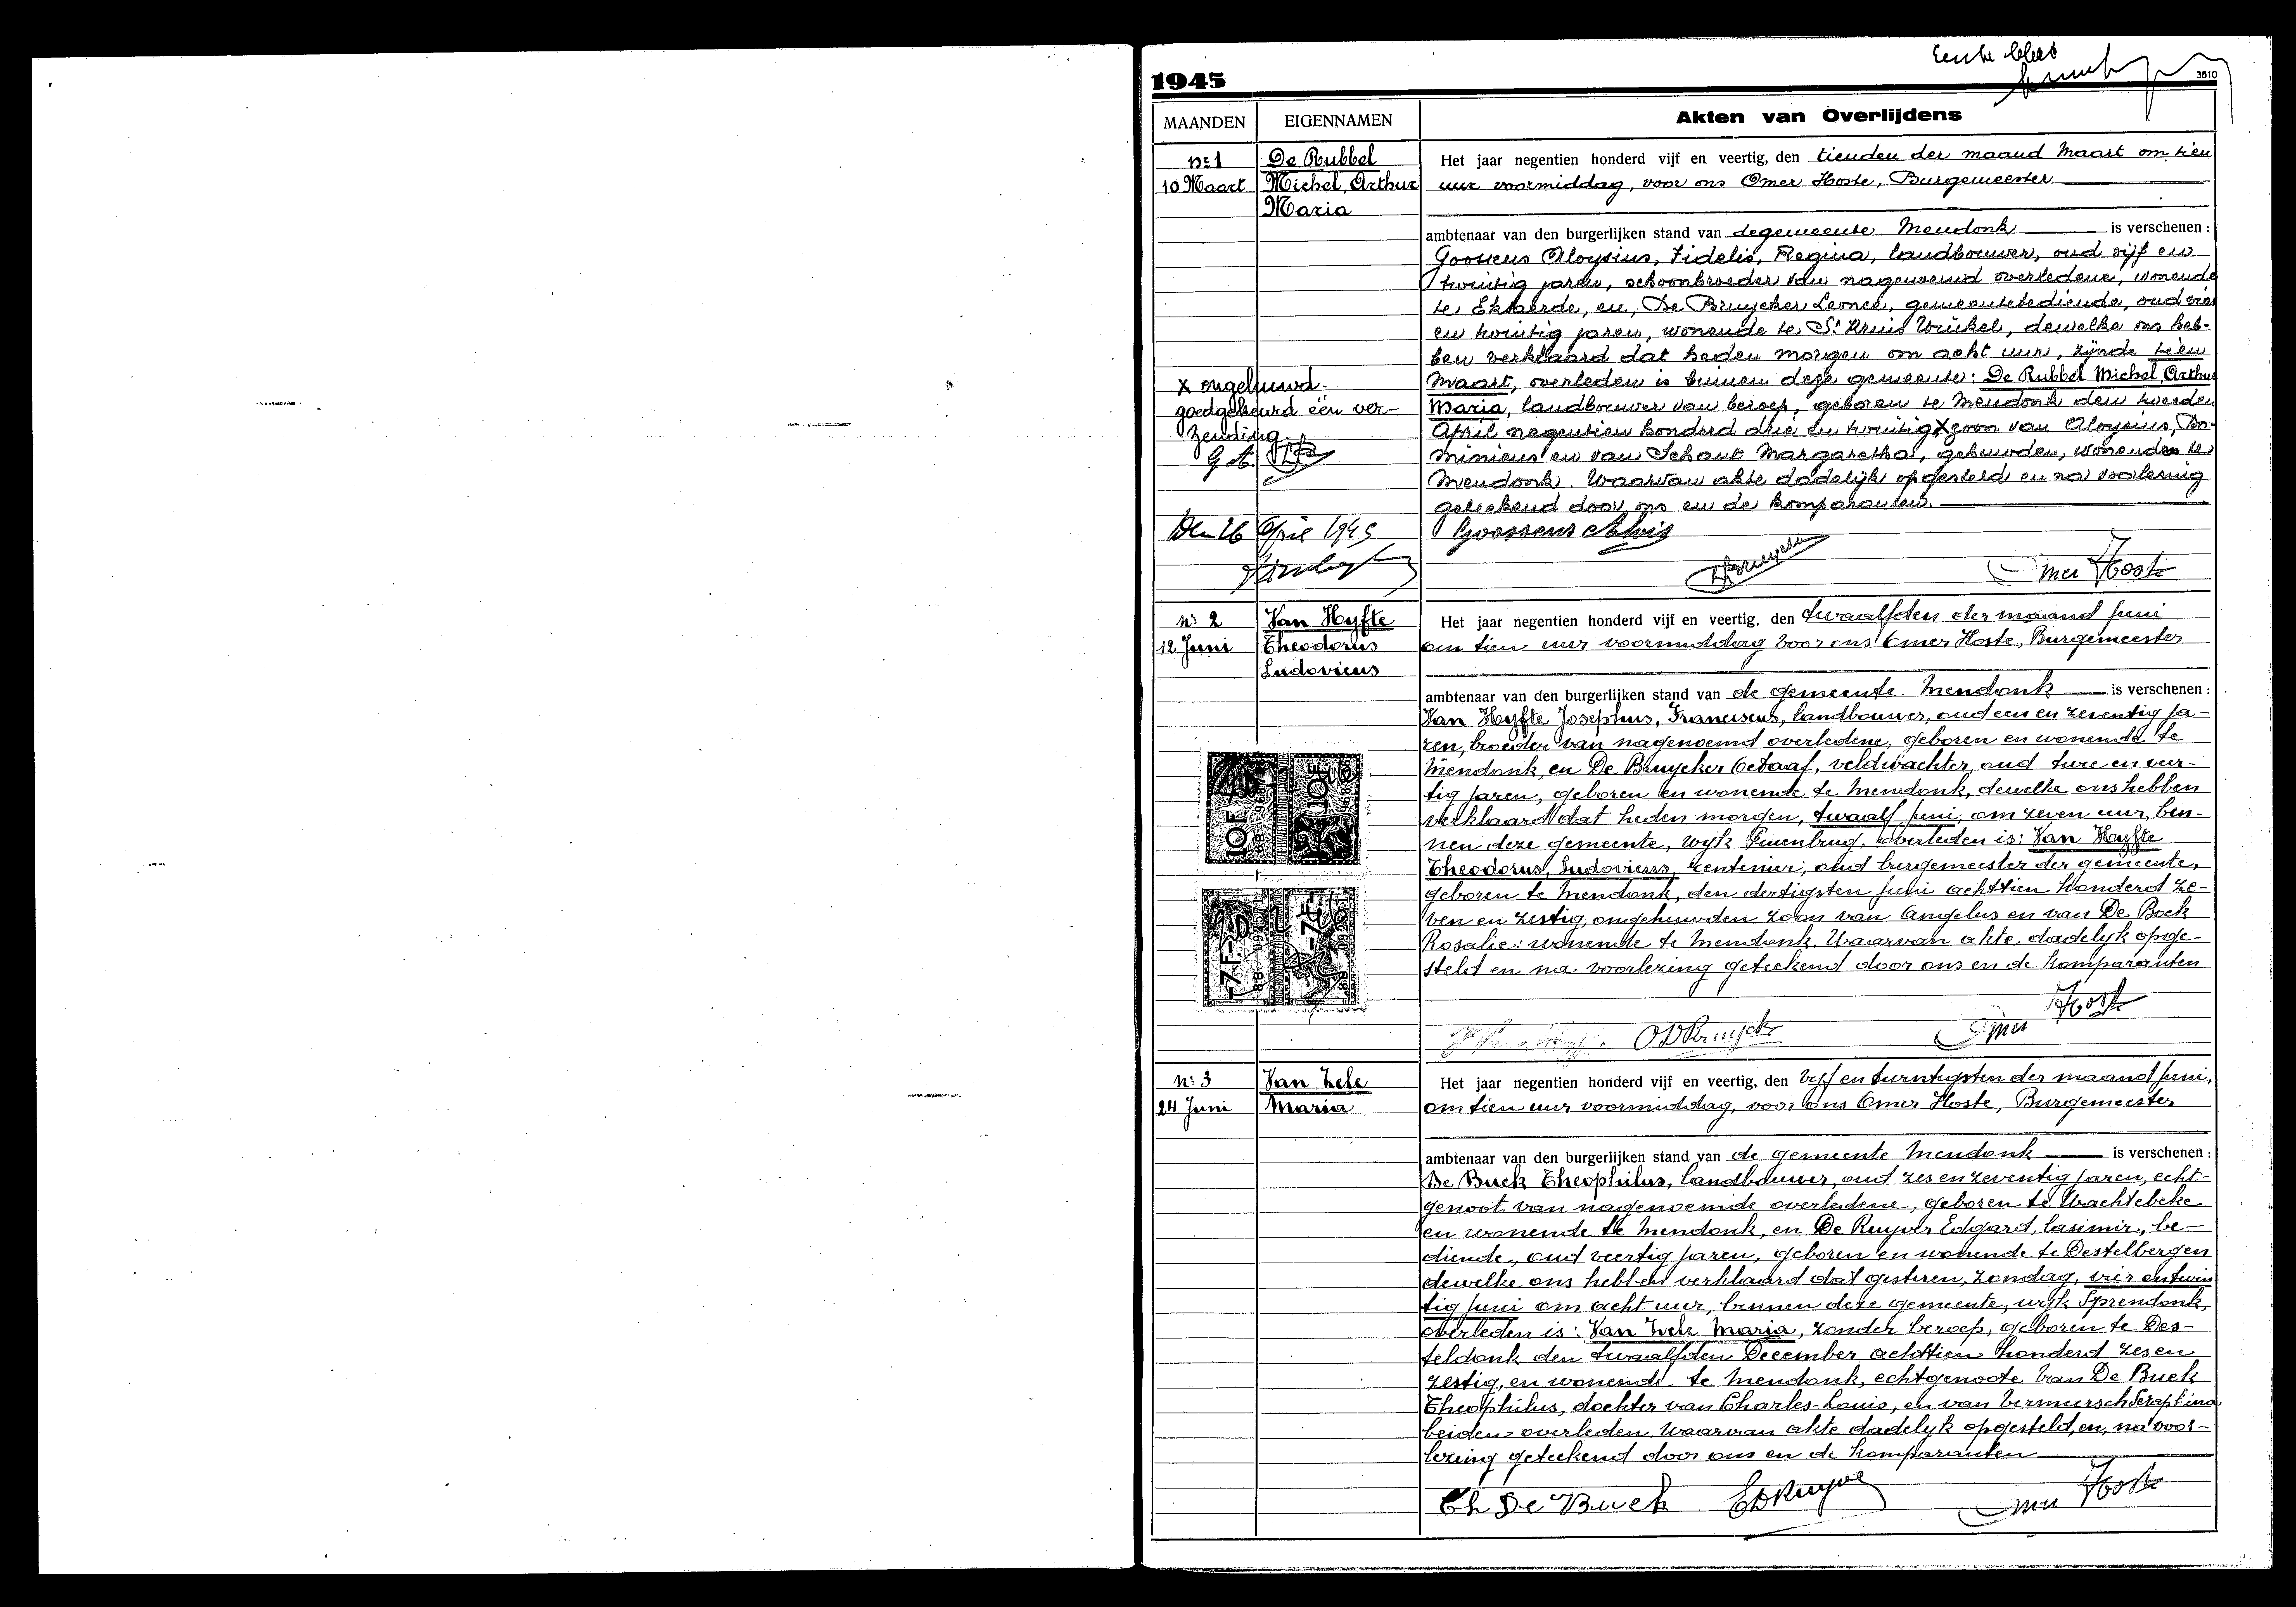 Eerste blad
1945
3610
MAANDEN
EIGENNAMEN
Akten van Overlijdens
nr 1
De Rubbel
10 Maart
Michel, Arthur
Maria
Het jaar negentien honderd vijf en veertig, den tienden der maand Maart om tien
uur voormiddag, voor ons Omer Hoste, Burgemeester
ambtenaar van den burgerlijken stand van de gemeente Mendonk is verschenen :
Goossens Aloysius, Fidelis, Regina, landbouwer, oud vijf en
twintig jaren, schoonbroeder van nagenoemd overledene, wonende
te Eksaerde, en, De Bruycker Leonce, gemeentebediende, oud vier
en twintig jaren, wonende te St Kruis Winkel, dewelke ons heb-
ben verklaard dat heden morgen om acht uur, zijnde tien
Maart, overleden is binnen deze gemeente: De Rubbel Michel, Arthur
Maria, landbouwer van beroep, geboren te Mendonk den tweeden
April negentien honderd drie en twintig x zoon van Aloysius, Do-
minicus en van Schaut Margaretha, gehuwden, wonenden te
Mendonk. Waarvan akte dadelijk opgesteld en na voorlezing
geteekend door ons en de komparanten.
x ongehuwd.
goedgekeurd één ver-
zending.
G A.
Den 26 April 1945
Goossens Alois
DBruycker
Omer Hoste
nr 2
Van Hyfte
12 Juni
Theodorus
Ludovicus
Het jaar negentien honderd vijf en veertig, den twaalfden der maand Juni
om tien uur voormiddag voor ons Omer Hoste, Burgemeester
ambtenaar van den burgerlijken stand van de gemeente Mendonk is verschenen :
Van Hyfte Josephus, Franciscus, landbouwer, oud een en zeventig ja-
ren, broeder van nagenoemd overledene, geboren en wonende te
Mendonk, en De Bruycker Octaaf, veldwachter, oud twee en veer-
tig jaren, geboren en wonende te Mendonk, dewelke ons hebben
verklaard dat heden morgen, twaalf Juni, om zeven uur, bin-
nen deze gemeente, wijk Puienbrug, overleden is: Van Hyfte
Theodorus, Ludovicus, rentenier, oud burgemeester der gemeente,
geboren te Mendonk, den dertigsten Juni achttien honderd ze-
ven en zestig, ongehuwden zoon van Angelus en van De Bock
Rosalie: wonende te Mendonk. Waarvan akte dadelijk opge-
steld en na voorlezing geteekend door ons en de komparanten
10F
10F
-7F-
-7F-
O D Bruycker
Omer Hoste
nr 3
Van Zele
24 Juni
Maria
Het jaar negentien honderd vijf en veertig, den vijf en twintigsten der maand Juni,
om tien uur voormiddag, voor ons Omer Hoste, Burgemeester
ambtenaar van den burgerlijken stand van de gemeente Mendonk is verschenen :
De Buck Theophilus, landbouwer, oud zes en zeventig jaren, echt-
genoot van nagenoemde overledene, geboren te Wachtebeke
en wonende te Mendonk, en De Ruyver Edgard, Casimir, be-
diende, oud veertig jaren, geboren en wonende te Destelbergen
dewelke ons hebben verklaard dat gisteren, Zondag, vier en twin
tig Juni om acht uur, binnen deze gemeente, wijk Sprendonk,
overleden is: Van Zele Maria, zonder beroep, geboren te Des-
teldonk den twaalfden December achttien honderd zes en
zestig, en wonende te Mendonk, echtgenoote van De Buck
Theophilus, dochter van Charles-Louis, en van Vermeersch Seraphina
beiden overleden. Waarvan akte dadelijk opgesteld, en, na voor-
lezing geteekend door ons en de komparanten
Th De Buck
E D Ruyver
Omer Hoste